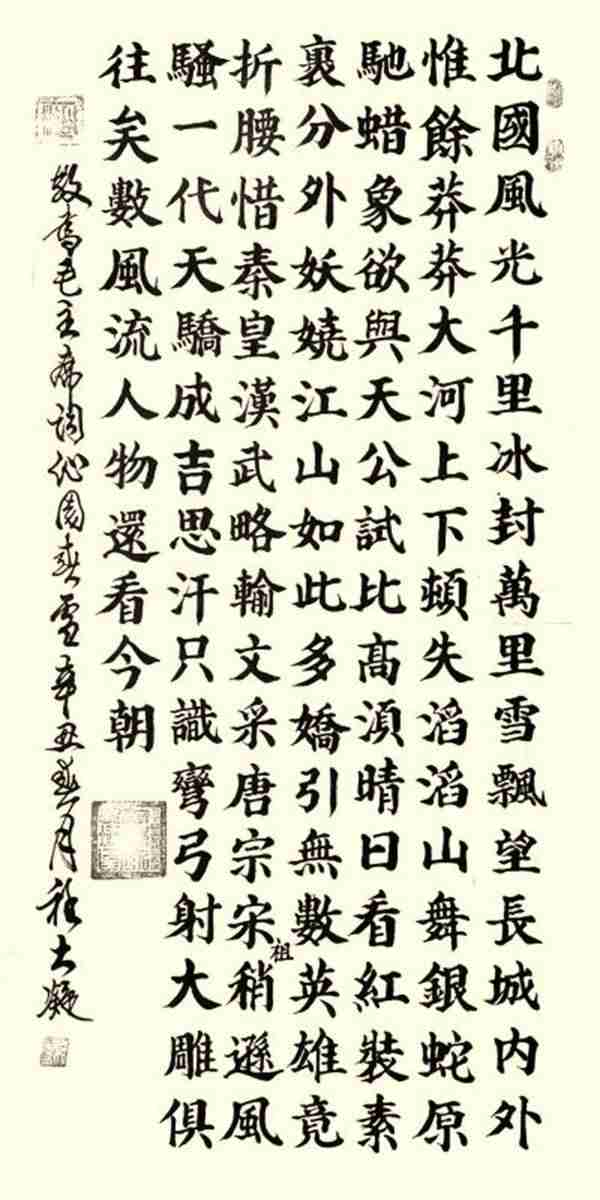 北國風光千里冰封萬里雪飄望長城內外
惟餘莽莽大河上下頓失滔滔山舞銀蛇原
馳蜡象欲與天公試比髙湏晴日看紅裝素
裹分外妖嬈江山如此多嬌引無數英雄竟
折腰惜秦皇漢武略輸文采唐宗宋祖稍遜風
騷一代天驕成吉思汗只識彎弓射大雕俱
往矣數風流人物還看今朝
敬書毛主席詞沁園春雪辛丑春月